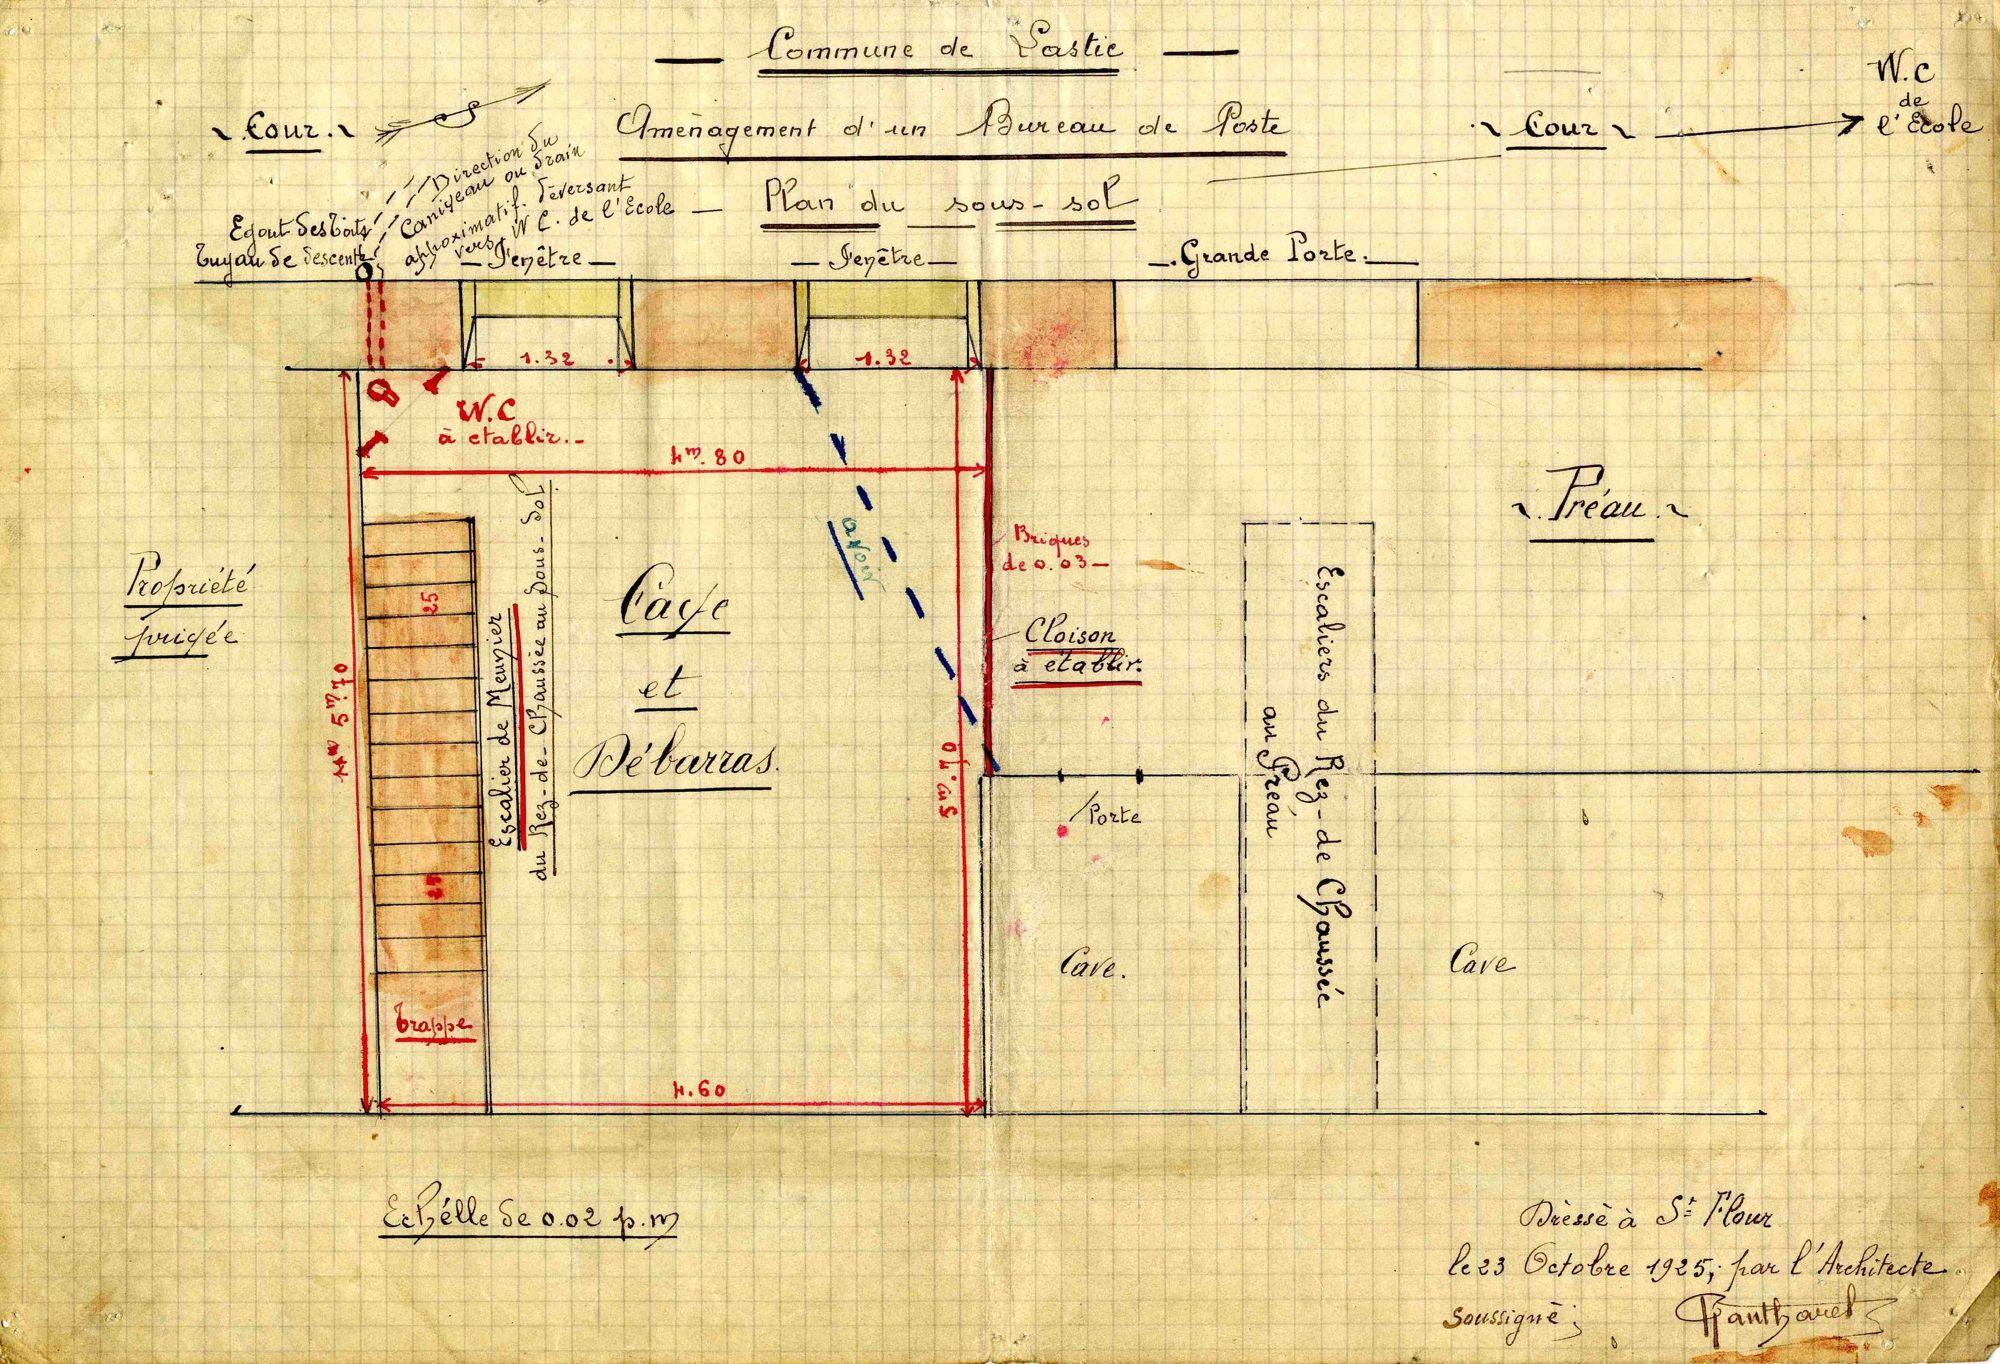 Commune de Lastic
W.C
de
l'Ecole
Cour
Aménagement d'un Bureau de Poste
Cour
Direction du
Caniveau ou drain
approximatif. déversant
vers W C. de l'Ecole
Plan du sous-sol
Egout des toits
Tuyau de descente
Fenêtre
Fenêtre
Grande Porte.
1.32
1.32
W.C
à etablir.
4m.80
Préau
Briques
de 0.03
avoir
Propriété
privée
25
Escalier de Meunier
du Rez-de-Chaussée au Sous-Sol
Cave
et
Débarras.
Cloison
à établir.
Escaliers du Rez-de Chaussée
au Préau
5m.70
5m.70
Porte
25
Cave.
Cave
Trappe
4.60
Echélle de 0.02 p.m
Dressé à St Flour
le 23 Octobre 1925, par l'Architecte
soussigné;